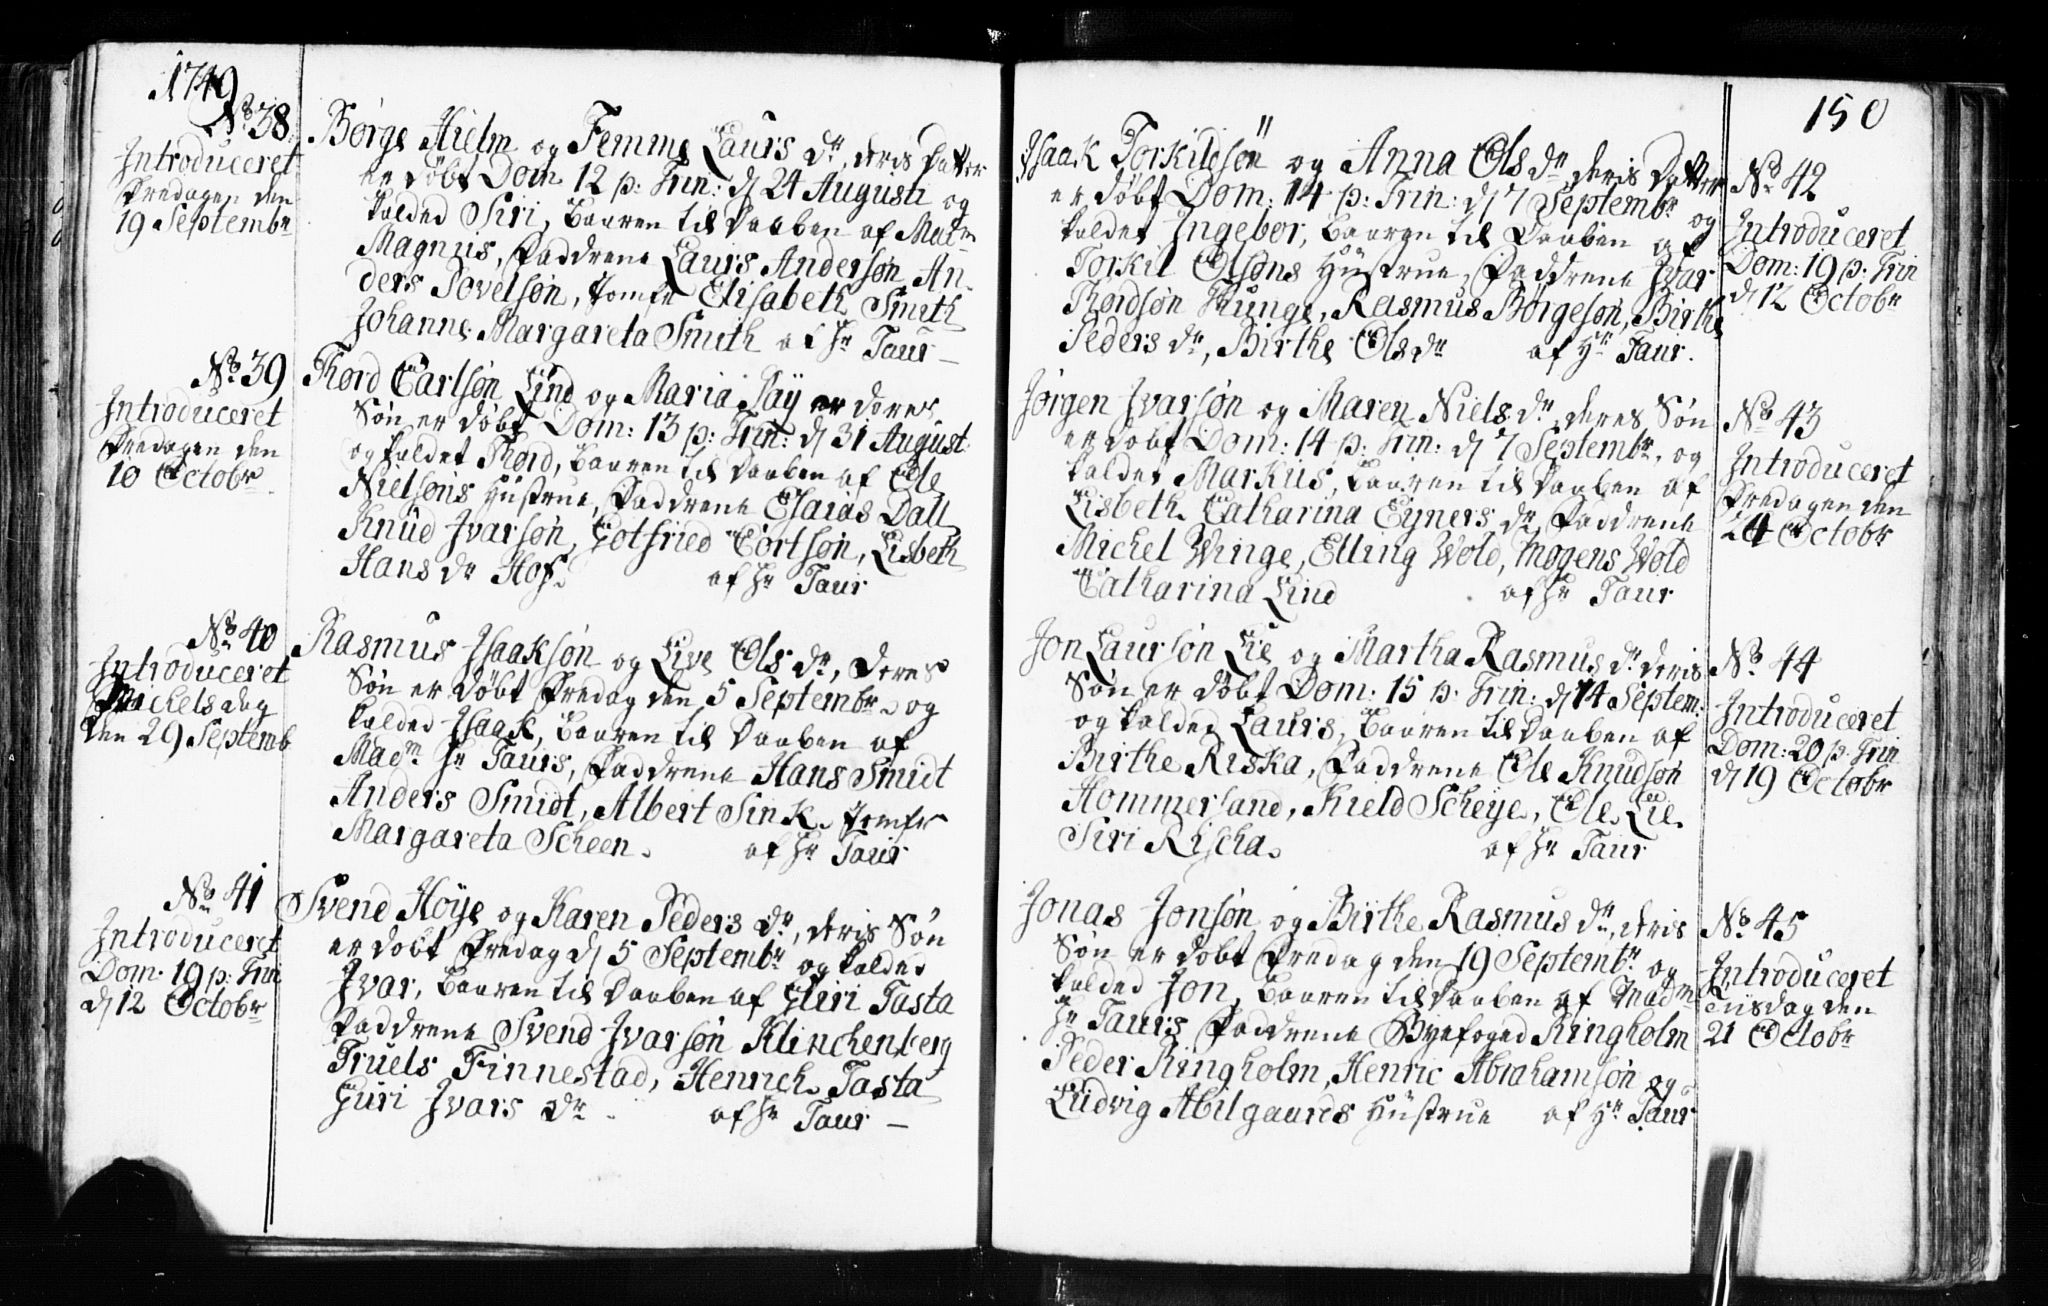 1749
No 38
Introduceret
Fredagen den
19 Septembr
Børge Hielm og Femme Laurs dr, deris Datter
er døbt Dom 12 p: Trin: d 24 Augusti og
kalded Siri, Baaren til Daaben af Madm
Magnus, Faddrene Laurs Andersøn, An-
ders Povelsøn, Jomfr Elisabeth Smith
Johanne Margareta Smith af Hr Taur
No 39
Introduceret
Fredagen den
10 Octobr
Thord Carlsøn Lind og Maria Say er deres
Søn er døbt Dom: 13 p: Trin: d 31 August
og kaldet Thord, Baaren til Daaben af Ole
Nielsøns Hüstrue, Faddrene Esaias Dall
Knüd Ivarsøn, Gotfried Cortsøn, Lisbeth
Hans dr Hof. af Hr Taur
No 40
Introduceret
Michels dag
den 29 Septemb
Rasmus Isaaksøn og Live Ols dr, deres
Søn er døbt Fredag den 5 Septembr og
kalded Isaak, Baaren til Daaben af
Madm Hr Taurs, Faddrene Hans Smidt
Anders Smidt, Albert Sink, Jomfr
Margareta Scheen. af Hr Taur
No 41
Introduceret
Dom. 19 p: Trin
d 12 Octobr
Svend Høye og Karen Peders dr, deris Søn
er døbt Fredag d 5 Septembr og kalded
Ivar, Baaren til Daaben af Giri Tasta
Faddrene Svend Ivarsøn Klinchenberg
Truels Finnestad, Henrich Tasta
Guri Ivars dr af Hr Taur
150
Isaak Torkildsøn og Anna Ols dr deris Datter
er døbt Dom: 14 p: Trin: d 7 Septembr og
kaldet Ingebor, Baaren til Daaben af
Torkil Olsøns Hüstrue, Faddrene Ivar
Thordsøn Hunge, Rasmus Børgesøn, Birthe
Peders dr, Birthe Ols dr af Hr Taur.
No 42
Introduceret
Dom: 19 p: Trin
d 12 Octobr
Jørgen Ivarsøn og Maren Niels dr, deres Søn
er døbt Dom: 14 p: Trin: d 7 Septembr, og
kaldet Markus, Baaren til Daaben af
Lisbeth Catharina Eyners dr, Faddrene
Michel Winge, Elling Wold, Mogens Wold
Catharina Lind af Hr Taur
No 43
Introduceret
Fredagen den
24 Octobr
Jon Laursøn Lie og Martha Rasmus dr deris
Søn er døbt Dom: 15 p: Trin: d 14 Septem:
og kalded Laurs, Baaren til Daaben af
Birthe Riska, Faddrene Ole Knudsøn
Hommersand, Kield Scheye, Ole Lie
Siri Rischa. af Hr Taur
No 44
Introduceret
Dom: 20 p: Trin
d 19 Octobr
Jonas Jonsøn og Birthe Rasmus dr, deris
Søn er døbt Fredag den 19 Septembr og
kalded Jon, Baaren til Daaben af Madm
Hr Taurs Faddrene Byefoged Ringholm
Peder Ringholm, Henric Abrahamsøn og
Lüdvig Abilgaards Hüstrue af Hr Taur
No 45
Introduceret
Tiisdag den
21 Octobr